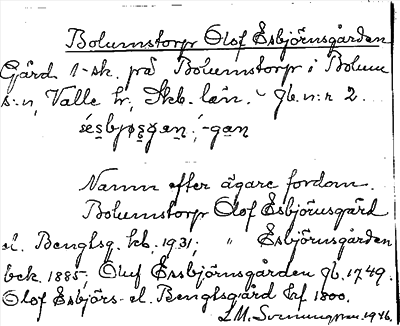 Bolumstorp Olof Esbjörnsgården
Gård 1-sk. på Bolumstorp i Bolum
s:n, Valle hr, Skb. län. Jb. n:r 2.
Namn efter ägare fordom.
Bolumstorp Olof Esbjörnsgård
el. Bengtsg. kb. 1931; " Esbjörnsgården
bek. 1885; Oluf Essbjörnsgården jb. 1749.
Olof Esbjörs- el. Bengtsgård 1800.
L.M. Svenungsson 1946.